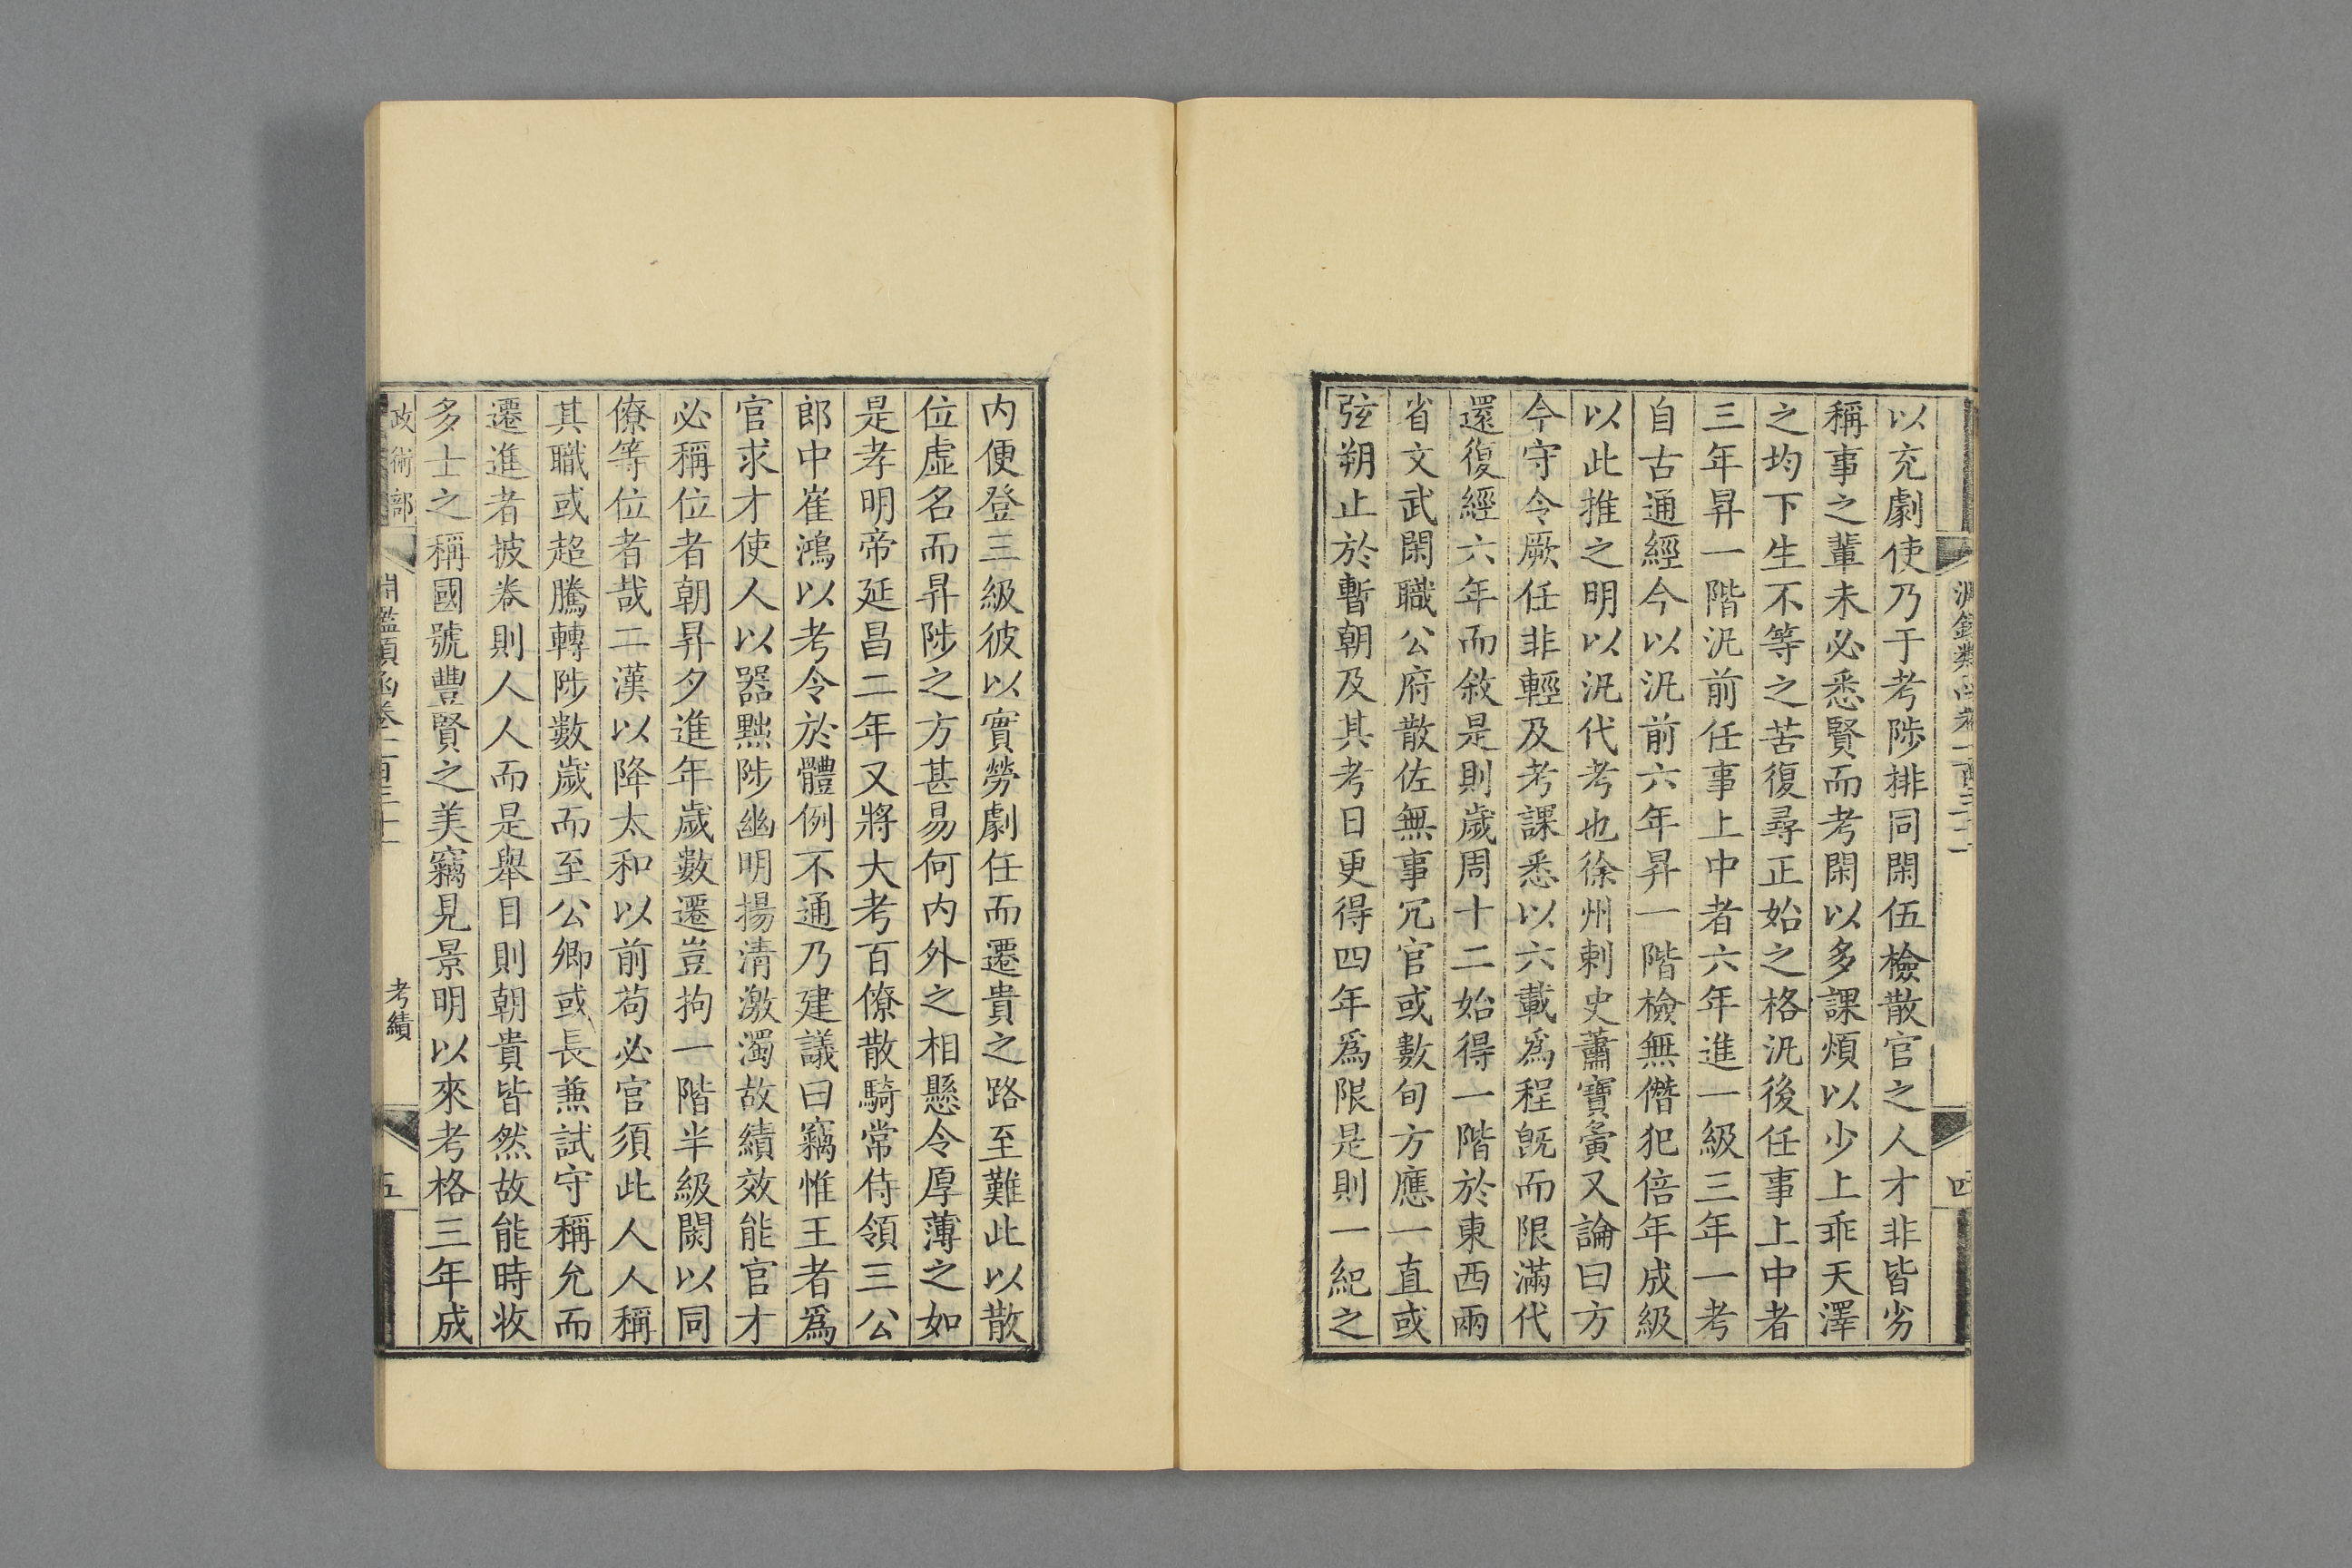 以充劇使乃于考陟排同閑伍檢散官之人才非皆劣
稱事之輩未必悉賢而考閑以多課煩以少上乖天澤
之均下生不等之苦復尋正始之格汎後任事上中者
三年昇一階汎前任事上中者六年進一級三年一考
自古通經今以汎前六年昇一階檢無僭犯倍年成級
以此推之明以汎代考也徐州刺史蕭寶夤又論曰方
今守令厥任非輕及考課悉以六載爲程旣而限滿代
還復經六年而敘是則歲周十二始得一階於東西兩
省文武閑職公府散佐無事冗官或數旬方應一直或
弦朔止於暫朝及其考日更得四年爲限是則一紀之
四
內便登三級彼以實勞劇任而遷貴之路至難此以散
位虛名而昇陟之方甚易何內外之相懸令厚薄之如
是孝明帝延昌二年又將大考百僚散騎常侍領三公
郎中崔鴻以考令於體例不通乃建議曰竊惟王者爲
官求才使人以器黜陟幽明揚清激濁故績效能官才
必稱位者朝昇夕進年歲數遷豈拘一階半級閡以同
僚等位者哉二漢以降太和以前苟必官須此人人稱
其職或超騰轉陟數歲而至公卿或長兼試守稱允而
遷進者披卷則人人而是舉目則朝貴皆然故能時收
多士之稱國號豐賢之美竊見景明以來考格三年成
政術部
考績
五